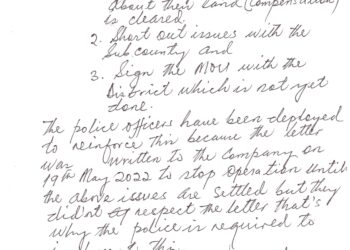 about their land (compensation)
is cleared.
2. Short out issues with the
Subcounty and
3. Sign the MOU with the
District which is not yet
done.
The police officers have been deployed
to reinforce this because the letter
was written to the Company on
19th May 2022 to stop operation until
the above issues are settled but they
did'nt respect the letter that's
why the police is required to
this